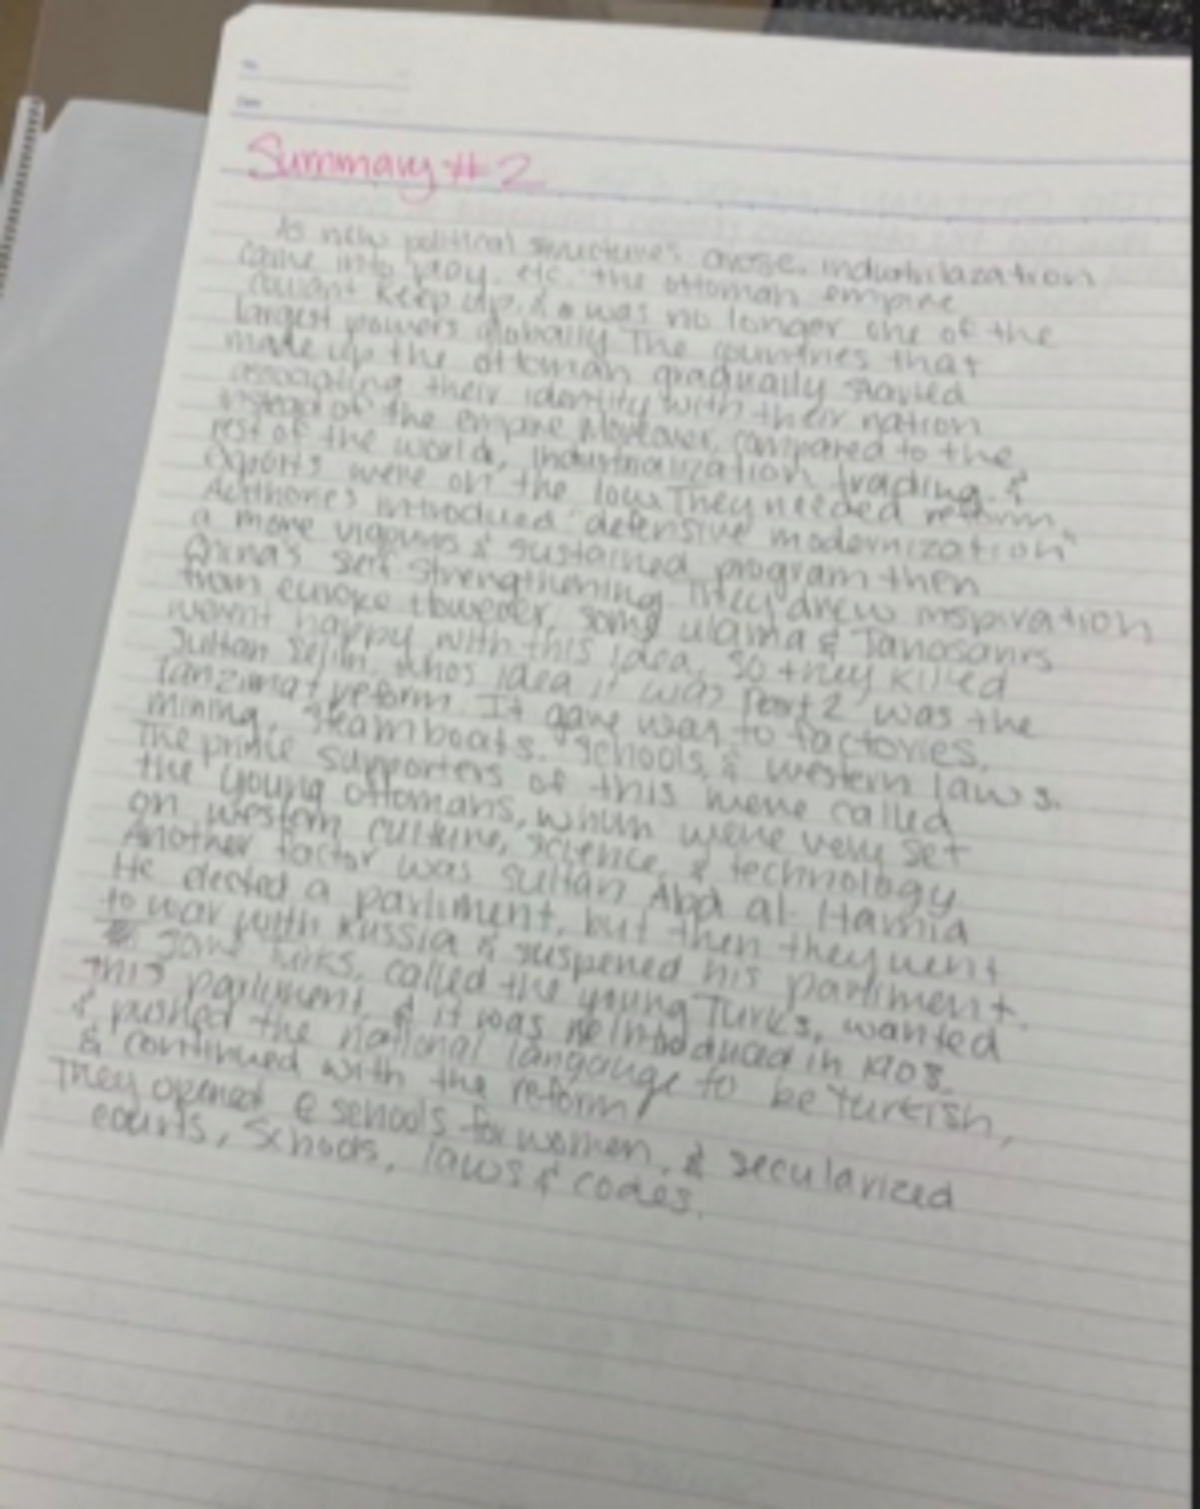 Summary # 2
As new political structures arose, industrilazation
came into play, etc. the ottoman empire
couldnt keep up, & was no longer one of the
largest powers globally The countries that
made up the ottoman gradually started
associating their identity with their nation
instead of the empire Moreover, compared to the
rest of the world, industrialization, trading, &
exports were on the low. They needed reform.
Authories introduced "defensive modernization"
a more vigouris & sustained program then
China's self strengthening They drew inspiration
from europe However, some ulama &
wernt happy with this idea, so they killed
Sultan Selim, whos idea it was Part 2 was the
Tanzimat reform. It gave way to factories,
mining, steamboats, schools, & western laws.
The prime supporters of this were called
the young ottomans, whom were very set
on western culture, science, & technology
Another factor was sultan Abd al-Hamid
He elected a parliment, but then they went
to war with Russia & suspened his parliment.
some Turks, called the young Turks, wanted
this parliment, & it was reintroduced in 1908
& pushed the national langauge to be Turkish,
& continued with the reform
They opened schools for women, & secularized
courts, schools, laws & codes.